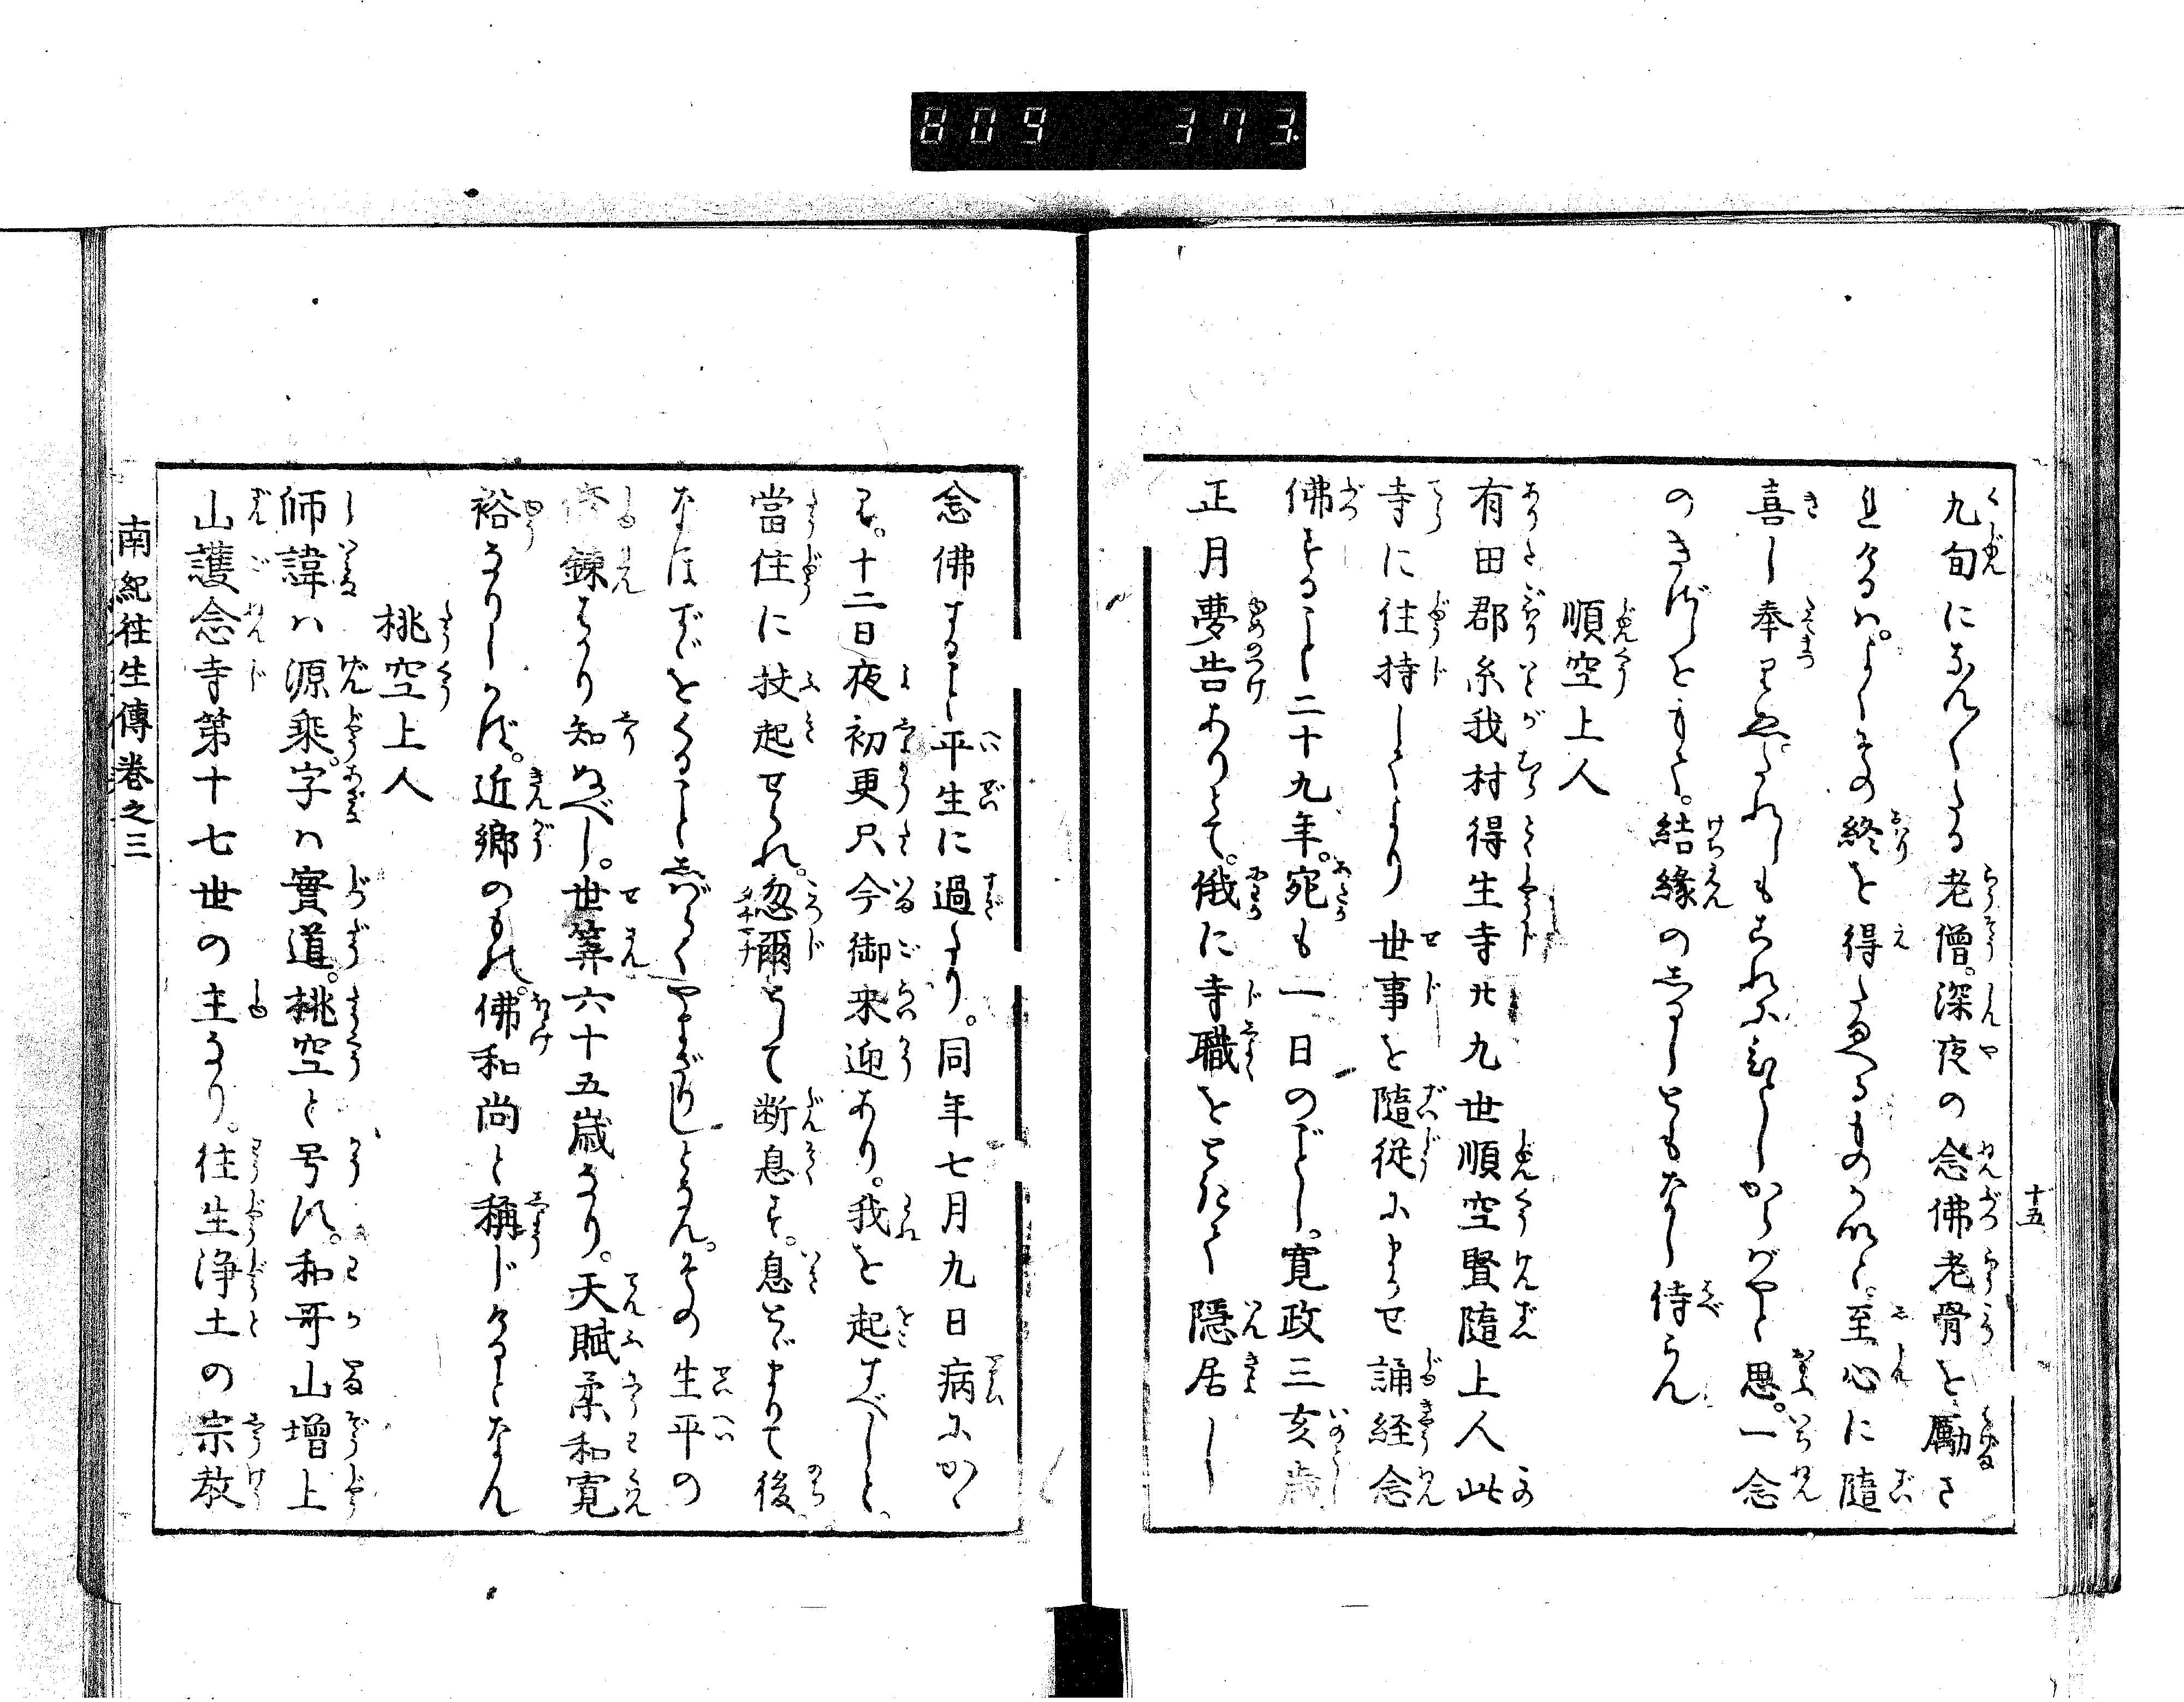 809 373
十五
九旬になん〳〵たる老僧。深夜の念佛老骨を勵さ
れけるハ。よくその終を得たまへるものかなと。至心に随
喜し奉りき。たれしもこれに
思。一念
のきざしをもて。結縁のしるしともなし侍らん
順空上人
有田郡糸我村得生寺廿九世順空賢随上人此
寺に住持してより世事を随従にまかせ誦経念
佛すること二十九年。宛も一日のごとし。寛政三亥歳
正月夢告ありとて。俄に寺職を
隠居し
念佛すること平生に過たり。同年七月九日病にかゝ
る。十二日夜初更只今御来迎あり。我を起すべしと。
當住に扶起せられ。忽爾として断息す。息とゞまりて後
なほずゞをくること志ばらくやまざりしとなん。その生平の
修錬はかり知ぬべし。世筭六十五歳なり。天賦柔和寛
裕なりしかば。近郷のもの。佛和尚と稱じけるとなん
桃空上人
師諱ハ源乘。字ハ實道。桃空と号す。和哥山増上
山護念寺第十七世の主なり。往生浄土の宗教
南紀往生傳巻之三